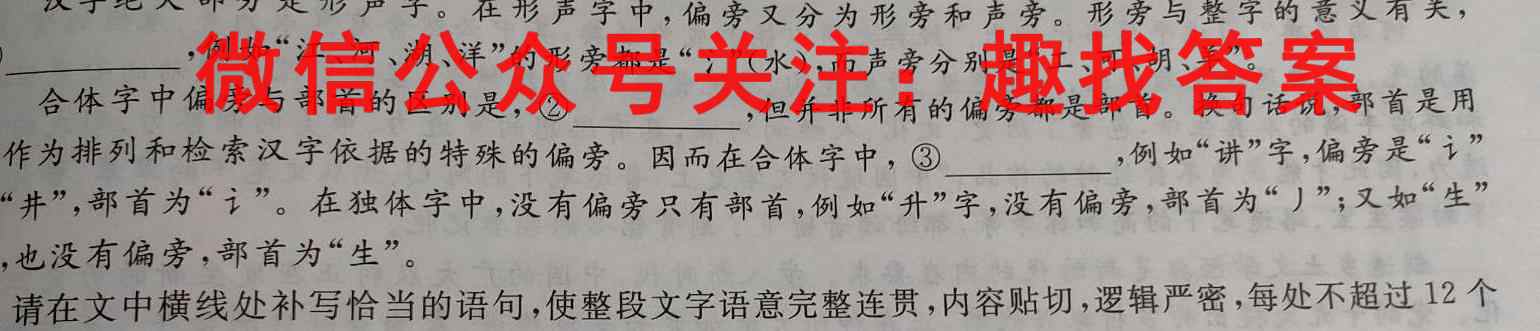 汉字绝大部分是形声字。在形声字中,偏旁又分为形旁和声旁。形旁与整字的意义有关,
,例如“江、河、湖、洋”的形旁都是“氵”(水),而声旁分别是“工、可、胡、羊”。
微信公众号关注:趣找答案
合体字中偏旁与部首的区别是,②,但并非所有的偏旁都是部首。换句话说,部首是用
作为排列和检索汉字依据的特殊的偏旁。因而在合体字中,③,例如“讲”字,偏旁是“讠”
“井”,部首为“讠”。在独体字中,没有偏旁只有部首,例如“升”字,没有偏旁,部首为“丿”;又如“生”
,也没有偏旁,部首为“生”。
请在文中横线处补写恰当的语句,使整段文字语意完整连贯,内容贴切,逻辑严密,每处不超过 12 个